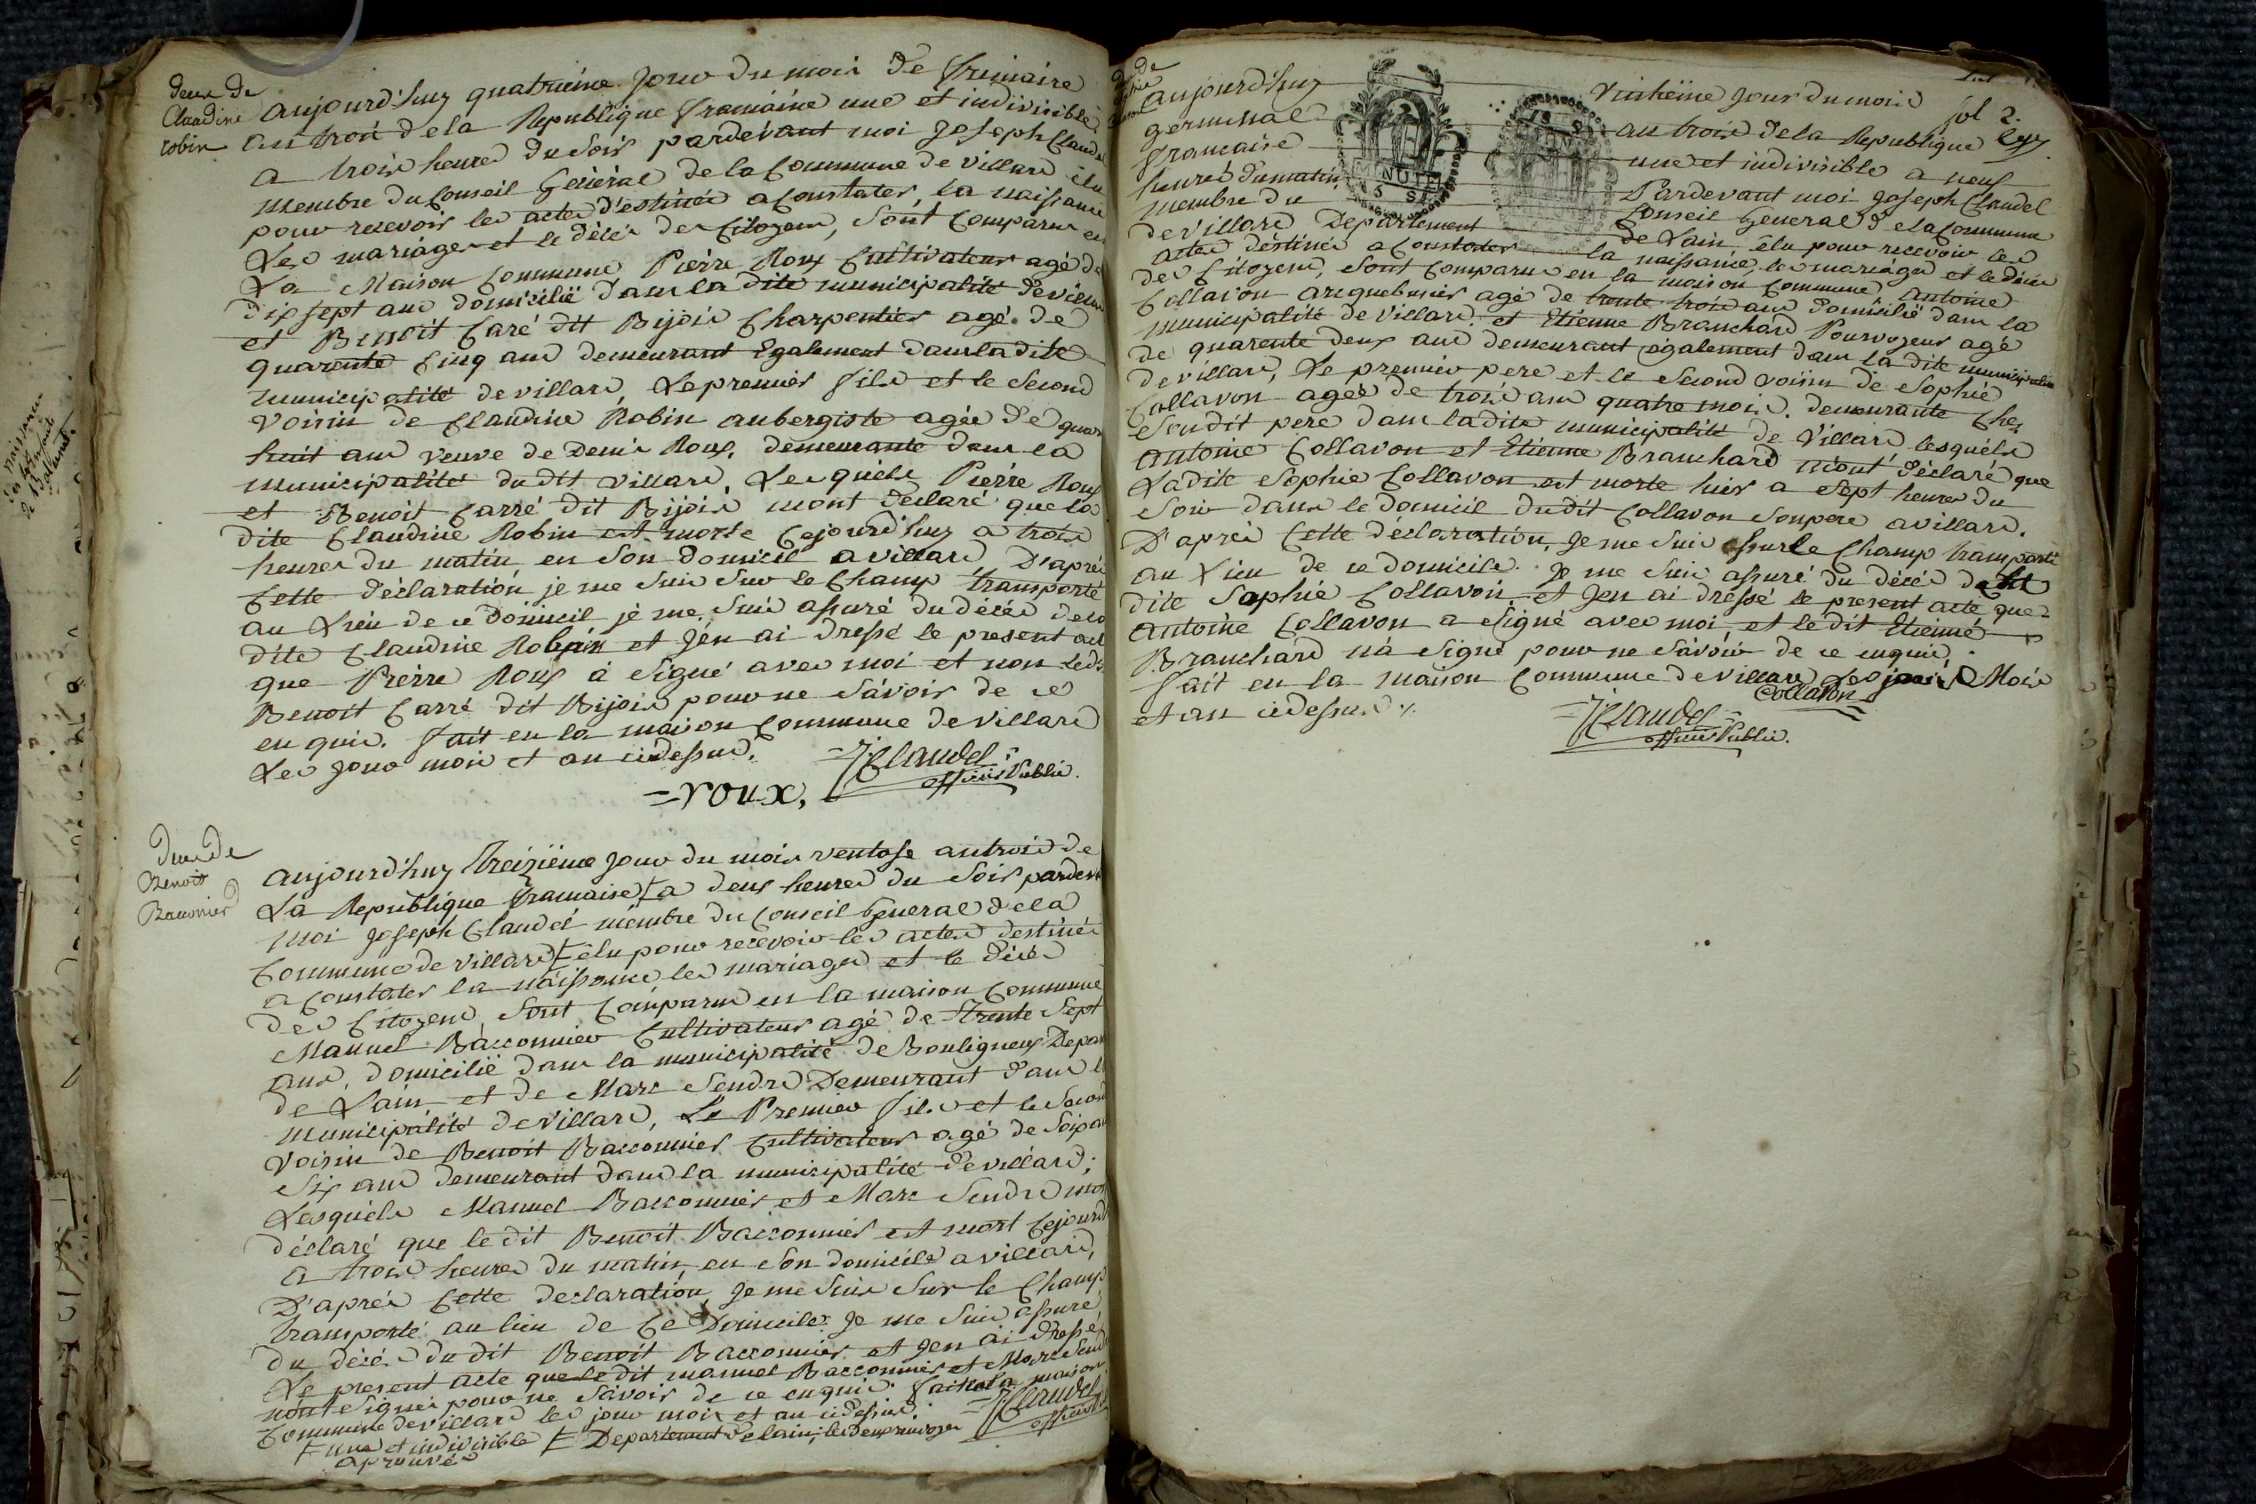 deces de
Claudine
robin
aujourd'huy quatrieme jour du mois de frimaire
an trois de la Republique francaise une et indivisible
a trois heures du soir pardevant moi Joseph Claudel
membre du Conseil General de la Commune de villars elu
pour recevoir les actes destinés a Constater, la naissance
Les mariages et le décés des Citoyens, sont Comparus en
La Maison Commune Pierre Roux Cultivateur agé de
dix sept ans domicilié dans la dite municipalité de villars
et Benoit Carré dit Bijois Charpentier agé de
quarante cinq ans demeurant Egalement dans la dite
municipalité de villars, Le premier fils et le Second
voisin de Claudine Robin aubergiste agée de quar
huit ans veuve de Denis Roux, demeurante dans la
municipalité du dit villars, Lesquels Pierre Roux
et Benoit Carré dit Bijois mont déclaré que la
dite Claudine Robin est morte Cejourd'huy a trois
heures du matin en son domicil a villars D'aprés
Cette déclaration je me suis sur le Champ transporté
au Lieu de ce domicil je me suis assuré du décés de la
dite Claudine Robin et jen ai dressé le present acte
que Pierre Roux a signé avec moi et non le dit
Benoit Carré dit Bijois pour ne savoir de ce
enquis. fait en la maison Commune de villars
Les jour mois et an cidessus.
JClaudel
officier Public.
=roux.
Deces de
Benoit
Bacconnier
aujourd'huy treizieme jour du mois ventose an trois de
La Republique francaise a deux heures du soir pardev
moi Joseph Claudel membre du Conseil General de la
Commune de villars elu pour recevoir les actes destinés
a Constater la naissance, les mariages et le décés
des Citoyens, sont Comparus en la maison Commune
Manuel Bacconnier Cultivateur agé de trente sept
ans, domicilié dans la municipalité de Bouligneux Depar
de Lain, et de Marc Sendre Demeurant dans la
municipalité de villars, Le Premier fils et le Second
voisin de Benoit Bacconnier Cultivateur agé de soixan
six ans demeurant dans la municipalité de villars;
Lesquels Manuel Bacconnier et Marc Sendre mon
déclaré que le dit Benoit Bacconnier est mort Cejourd
a trois heures du matin, en son domicile a villars,
D'aprés Cette déclaration, je me suis sur le Champ
transporté au lieu de Ce Domicile je me suis assuré,
du décés du dit Benoit Bacconnier et jen ai dressé
Le present acte que le dit manuel Bacconnier et Marc Send
nont signés pour ne savoir de ce enquis. fait en la maison
Commune de villars les jour mois et an cidessus.
JClaudel
officier
une et indivisible Departement de lain, les deux renvoyes
aprouvés
aujourd'huy vintieme jour du mois
fol 2.
germinal an trois de la Republique
francaise une et indivisible a neuf
heures du matin, Pardevant moi Joseph Claudel
membre du Conseil General de la Commune
de villars Departement de Lain, élu pour recevoir les
actes déstinés a Constater la naissance, les mariages et le décés
des Citoyens, sont Comparus en la maison Commune Antoine
Collavon arquebusier agé de trente trois ans domicilié dans la
municipalité de villars, et Etienne Branchard Pourvoyeur agé
de quarente deux ans demeurant également dans la dite municipalité
de villars, Le premier pere et le Second voisin de Sophie
Collavon agée de trois ans quatre mois. demeurante Chez
sondit pere dans ladite municipalité de Villars lesquels
Antoine Collavon et Etienne Branchard mont déclaré que
Ladite Sophie Collavon est morte hier a sept heures du
soir dans le domicil dudit Collavon son pere a villars.
D'aprés Cette déclaration, je me suis sur le Champ transporté
au Lieu de ce domicile. je me suis assuré du décés de la
dite Sophie Collavon et jen ai dressé le present acte que
Antoine Collavon a signé avec moi, et le dit Etienne
Branchard na signé pour ne savoir de ce enquis,
fait en la maison Commune de villars Les jour, Mois
et an cidessus.
Collavon
JClaudel
officier Public.